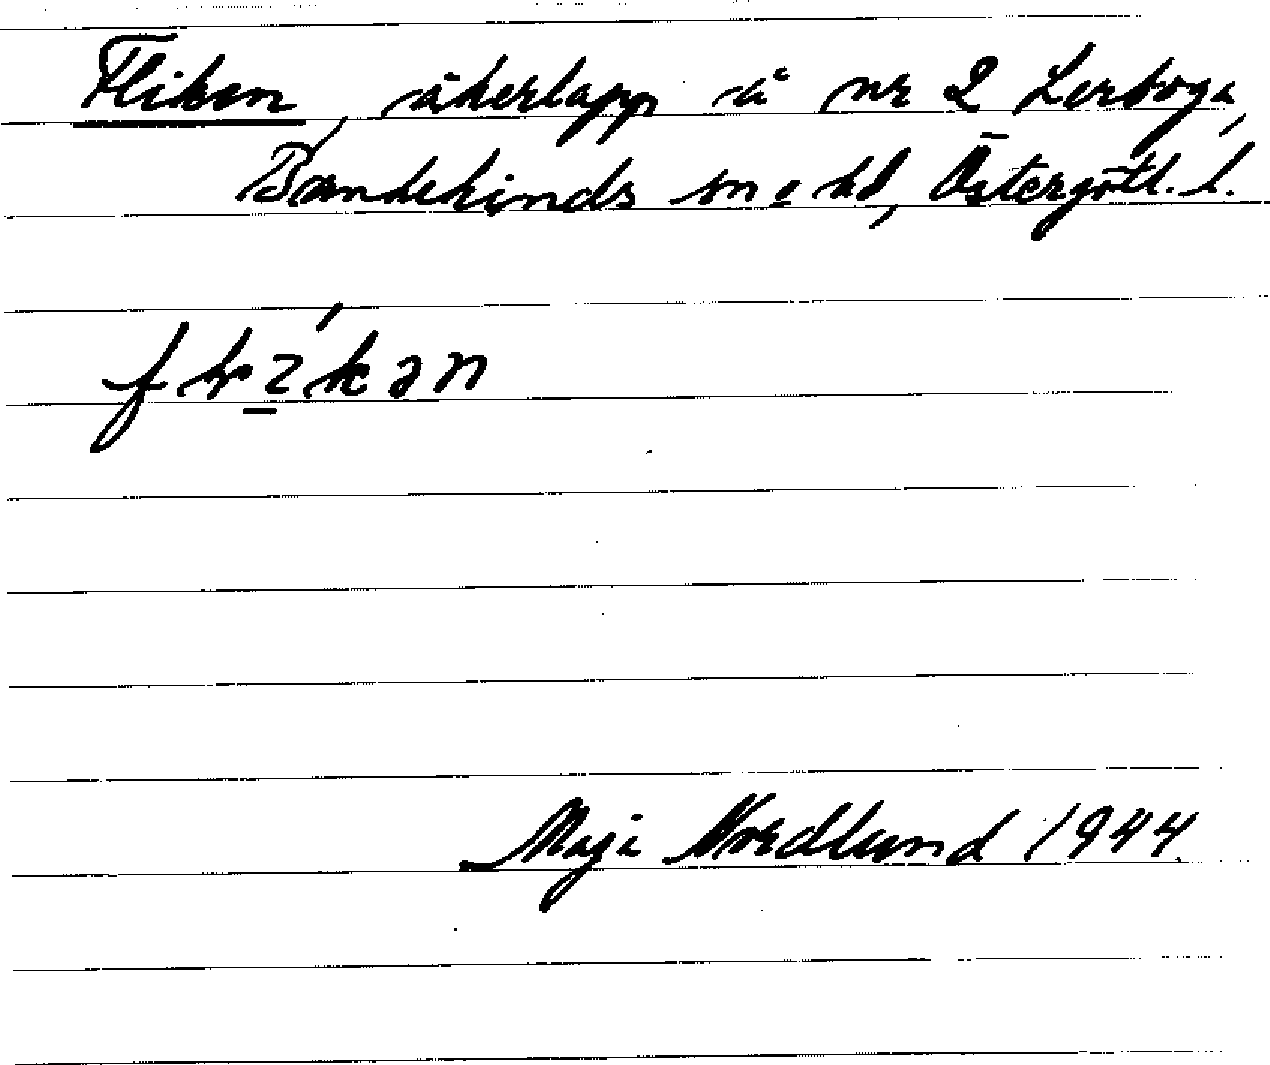 Fliken, åkerlapp å nr 2 Lerboga,
Bankekinds sn o hd, Östergötl. l.
Maja Nordlund 1944.